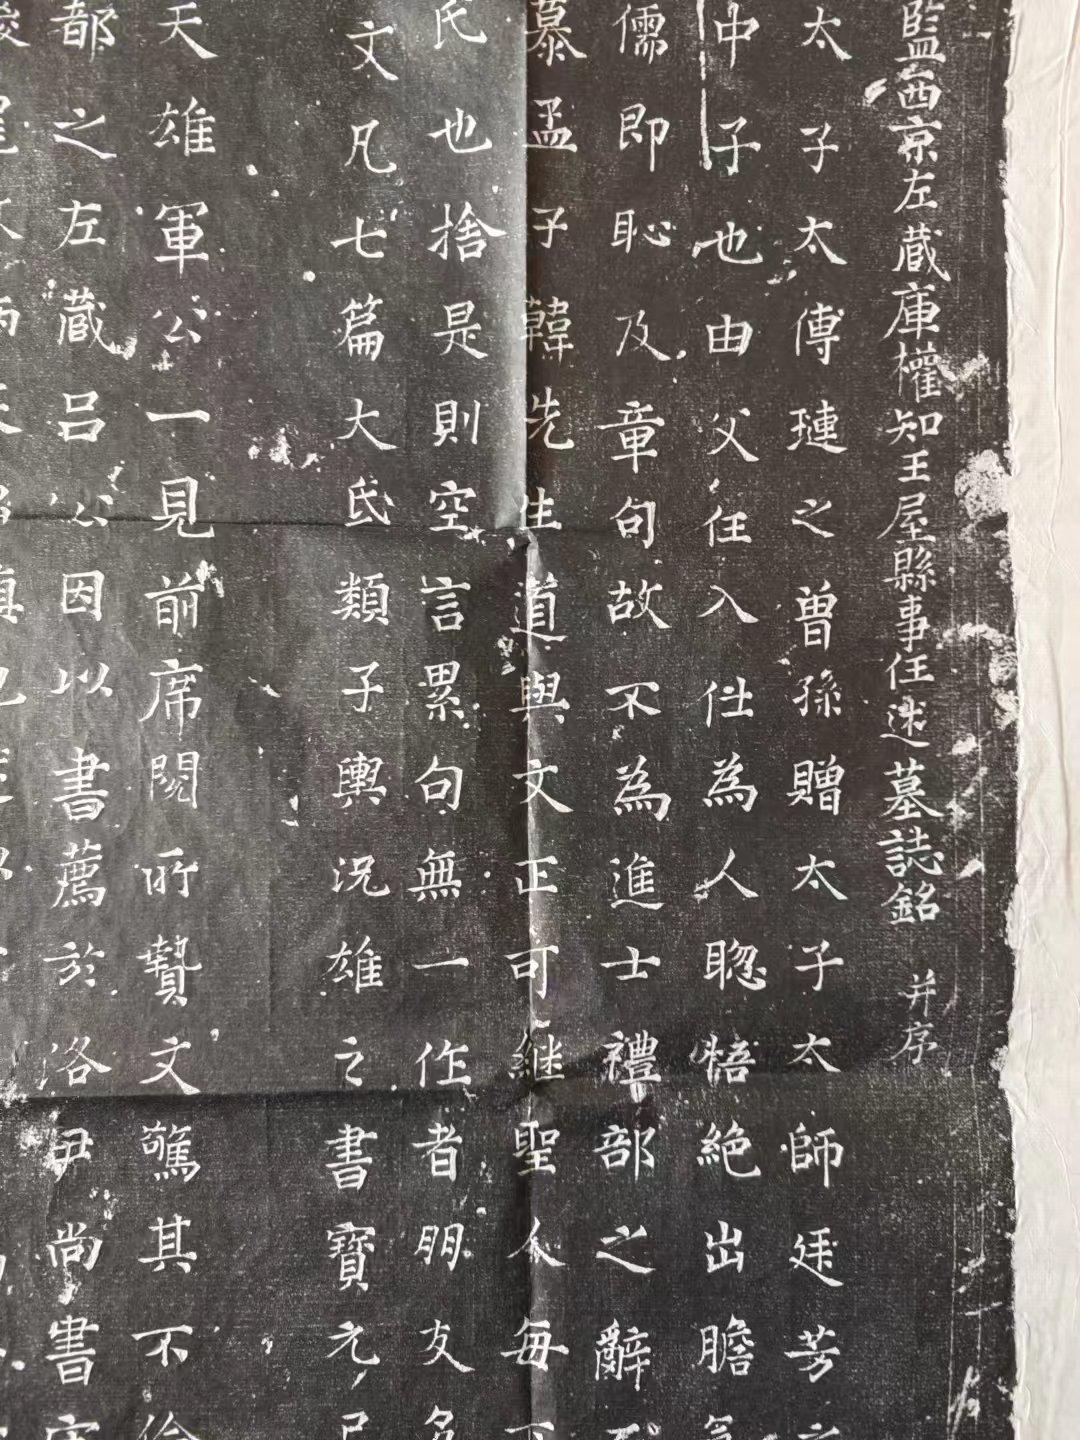 監西京左藏庫權知王屋縣事任迷墓誌銘 并序
太子太傅璉之曾孫贈太子太師廷芳之
中子也由父任入仕為人聰悟絕出膽氣
儒即恥及章句故不為進士禮部之辭不
慕孟子韓先生道與文正可継聖人每下
氏也捨是則空言累句無一作者朋友名
文凡七篇大氐類子輿況雄之書寶元己
天雄軍公一見前席閱所贄文驚其不倫
都之左藏呂公因以書薦於洛尹尚書宋